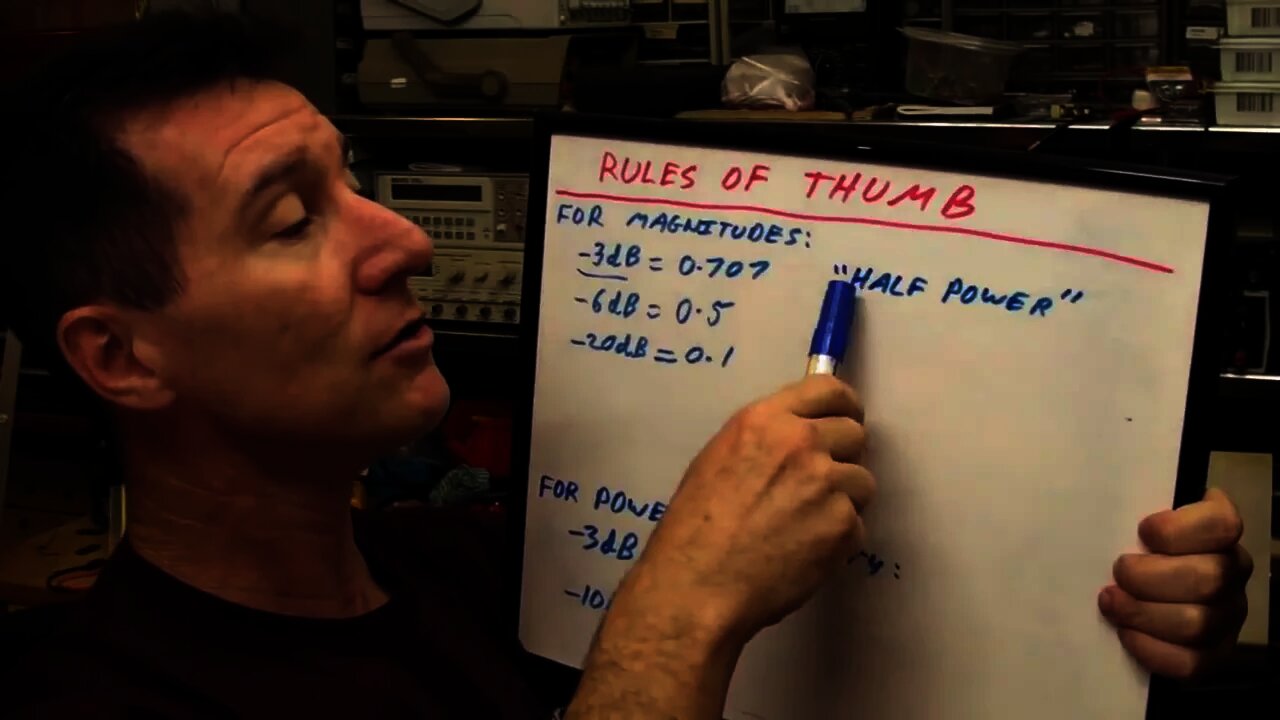 RULES OF THUMB
FOR MAGNITUDES:
-3dB = 0.707 "HALF POWER"
-6dB = 0.5
-20dB = 0.1
FOR
-3dB